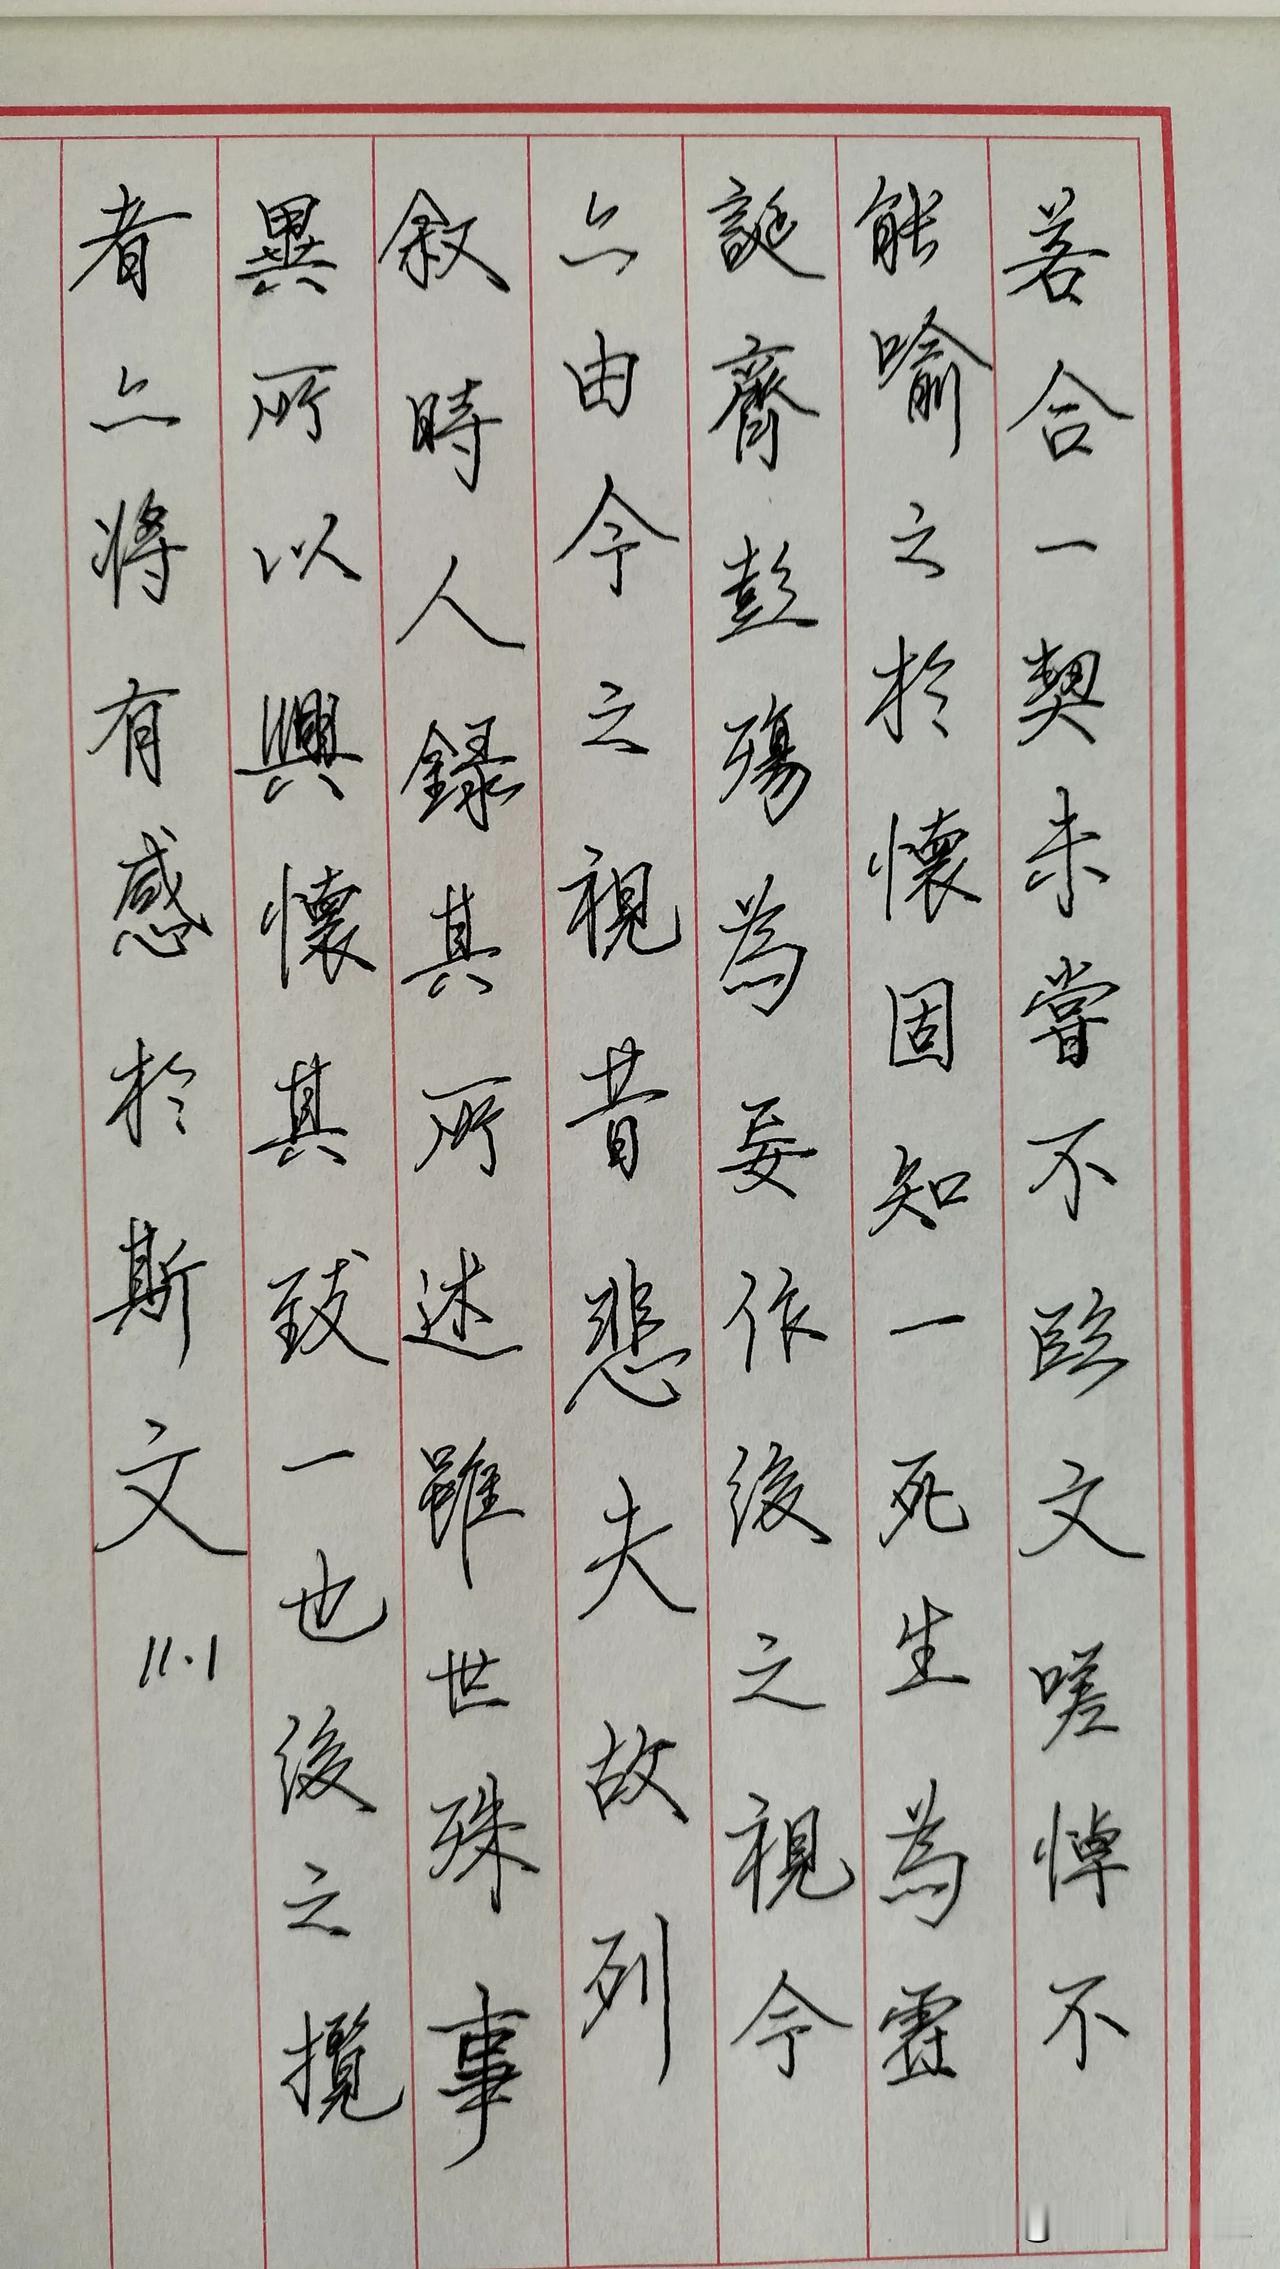 若合一契未嘗不臨文嗟悼不
能喻之於懷固知一死生為虛
誕齊彭殤為妄作後之視今
亦由今之視昔悲夫故列
敘時人錄其所述雖世殊事
異所以興懷其致一也後之攬
者亦將有感於斯文
11.1